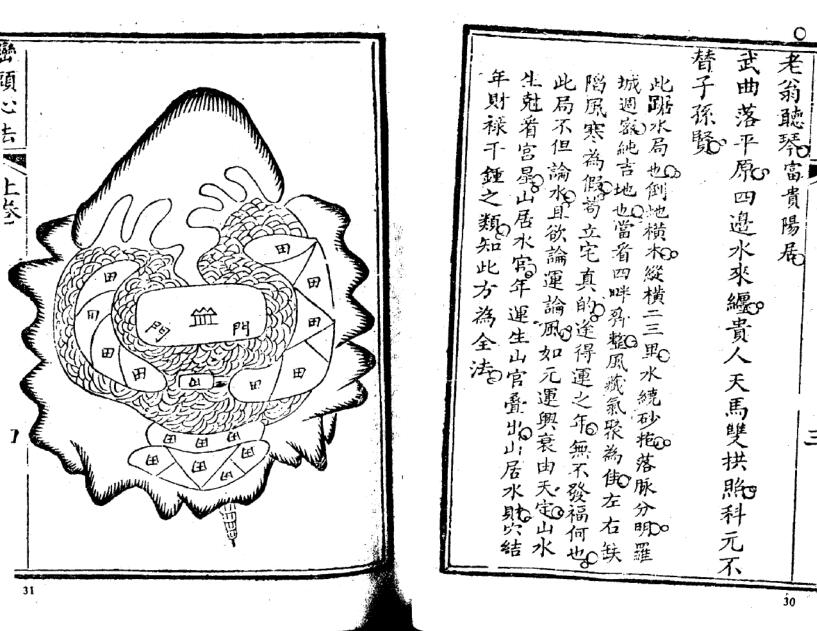 老翁聽琴富貴陽居
武曲落平原四邊水來纏貴人天馬雙拱照科元不
替子孫賢
此踞水局也倒地橫木縱橫二三里水繞砂抱落脉分明羅
城週密純吉地也當看四畔齊整風藏氣聚為佳左右缺
陷風寒為假苟立宅真的逢得運之年無不發福何也
此局不但論水且欲論運論風如元運興衰由天定山水
生尅看宮星山居水宮年運生山官疊出山居水財穴結
年財祿千鍾之類知此方為全法
30
三
巒頭心法
上卷
田
田
田
田
田
田
田
田
田
門
門
田
田
田
田
田
田
田
田
31